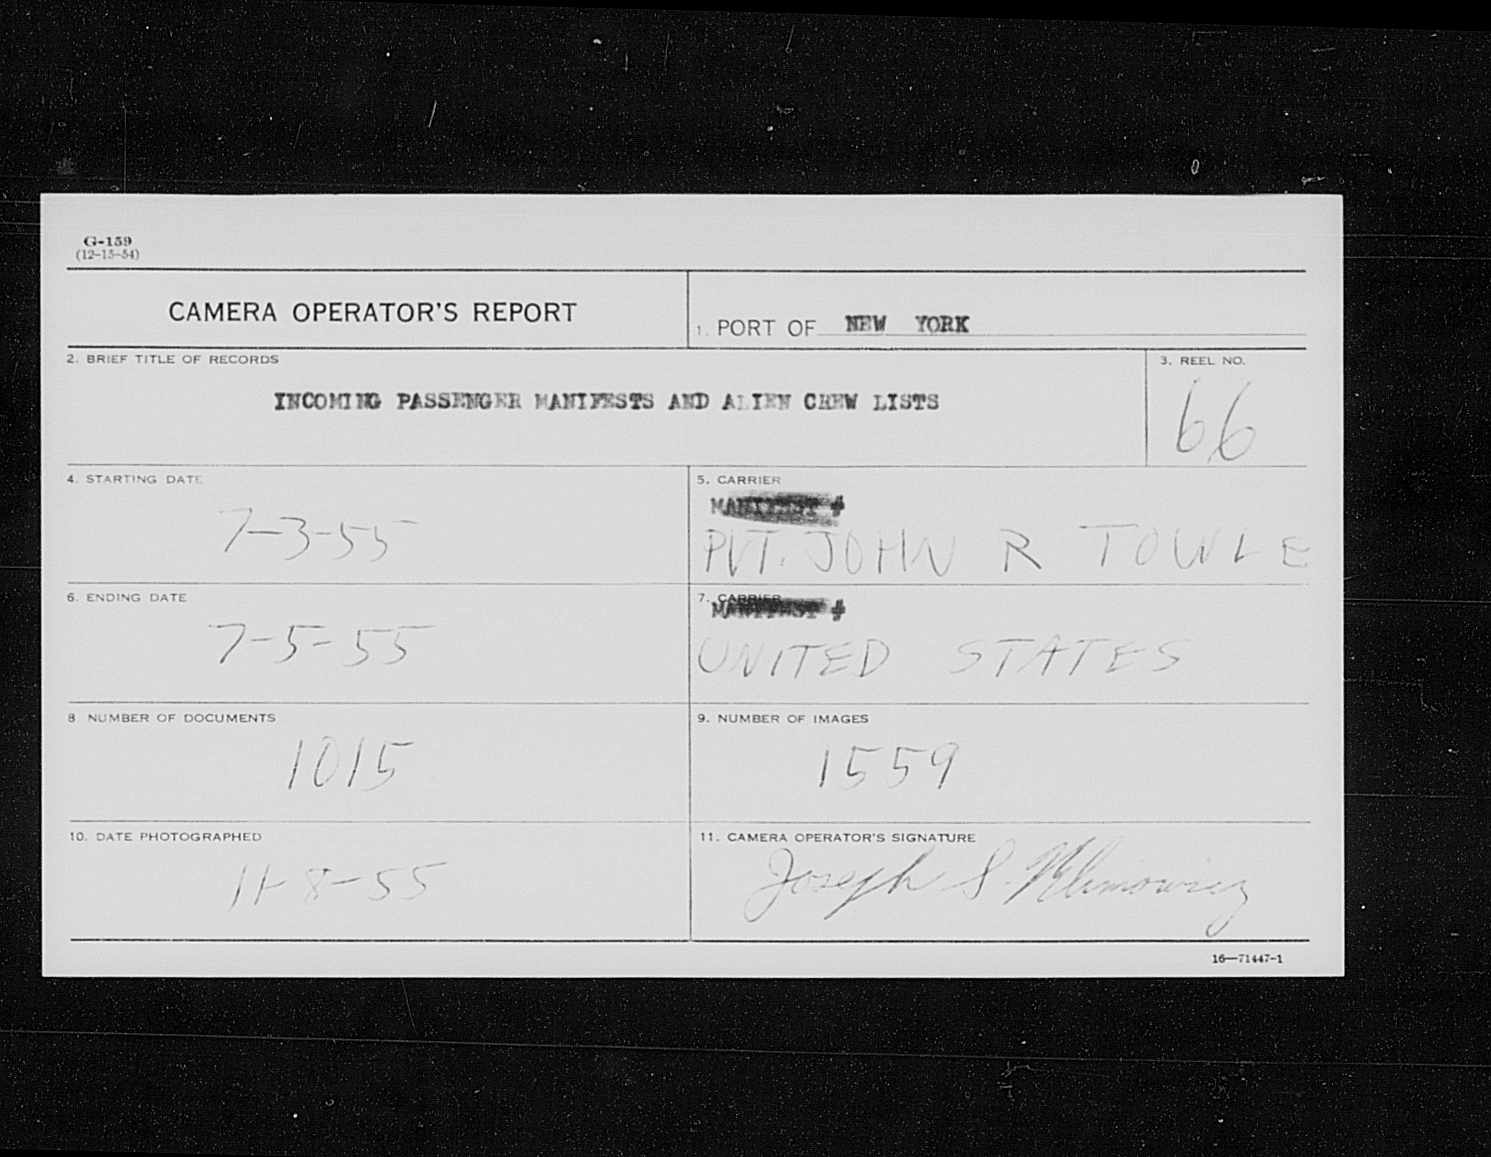 G-159
(12-15-54)
CAMERA OPERATOR'S REPORT
1. PORT OF NEW YORK
2. BRIEF TITLE OF RECORDS
INCOMING PASSENGER MANIFESTS AND ALIEN CREW LISTS
3. REEL NO.
66
4. STARTING DATE
7-3-55
5. CARRIER
MANIFEST #
PVT. JOHN R TOWLE
6. ENDING DATE
7-5-55
7. CARRIER
MANIFEST #
UNITED STATES
8 NUMBER OF DOCUMENTS
1015
9. NUMBER OF IMAGES
1559
10. DATE PHOTOGRAPHED
11-8-55
11. CAMERA OPERATOR'S SIGNATURE
Joseph S. Klimowicz
16—71447-1